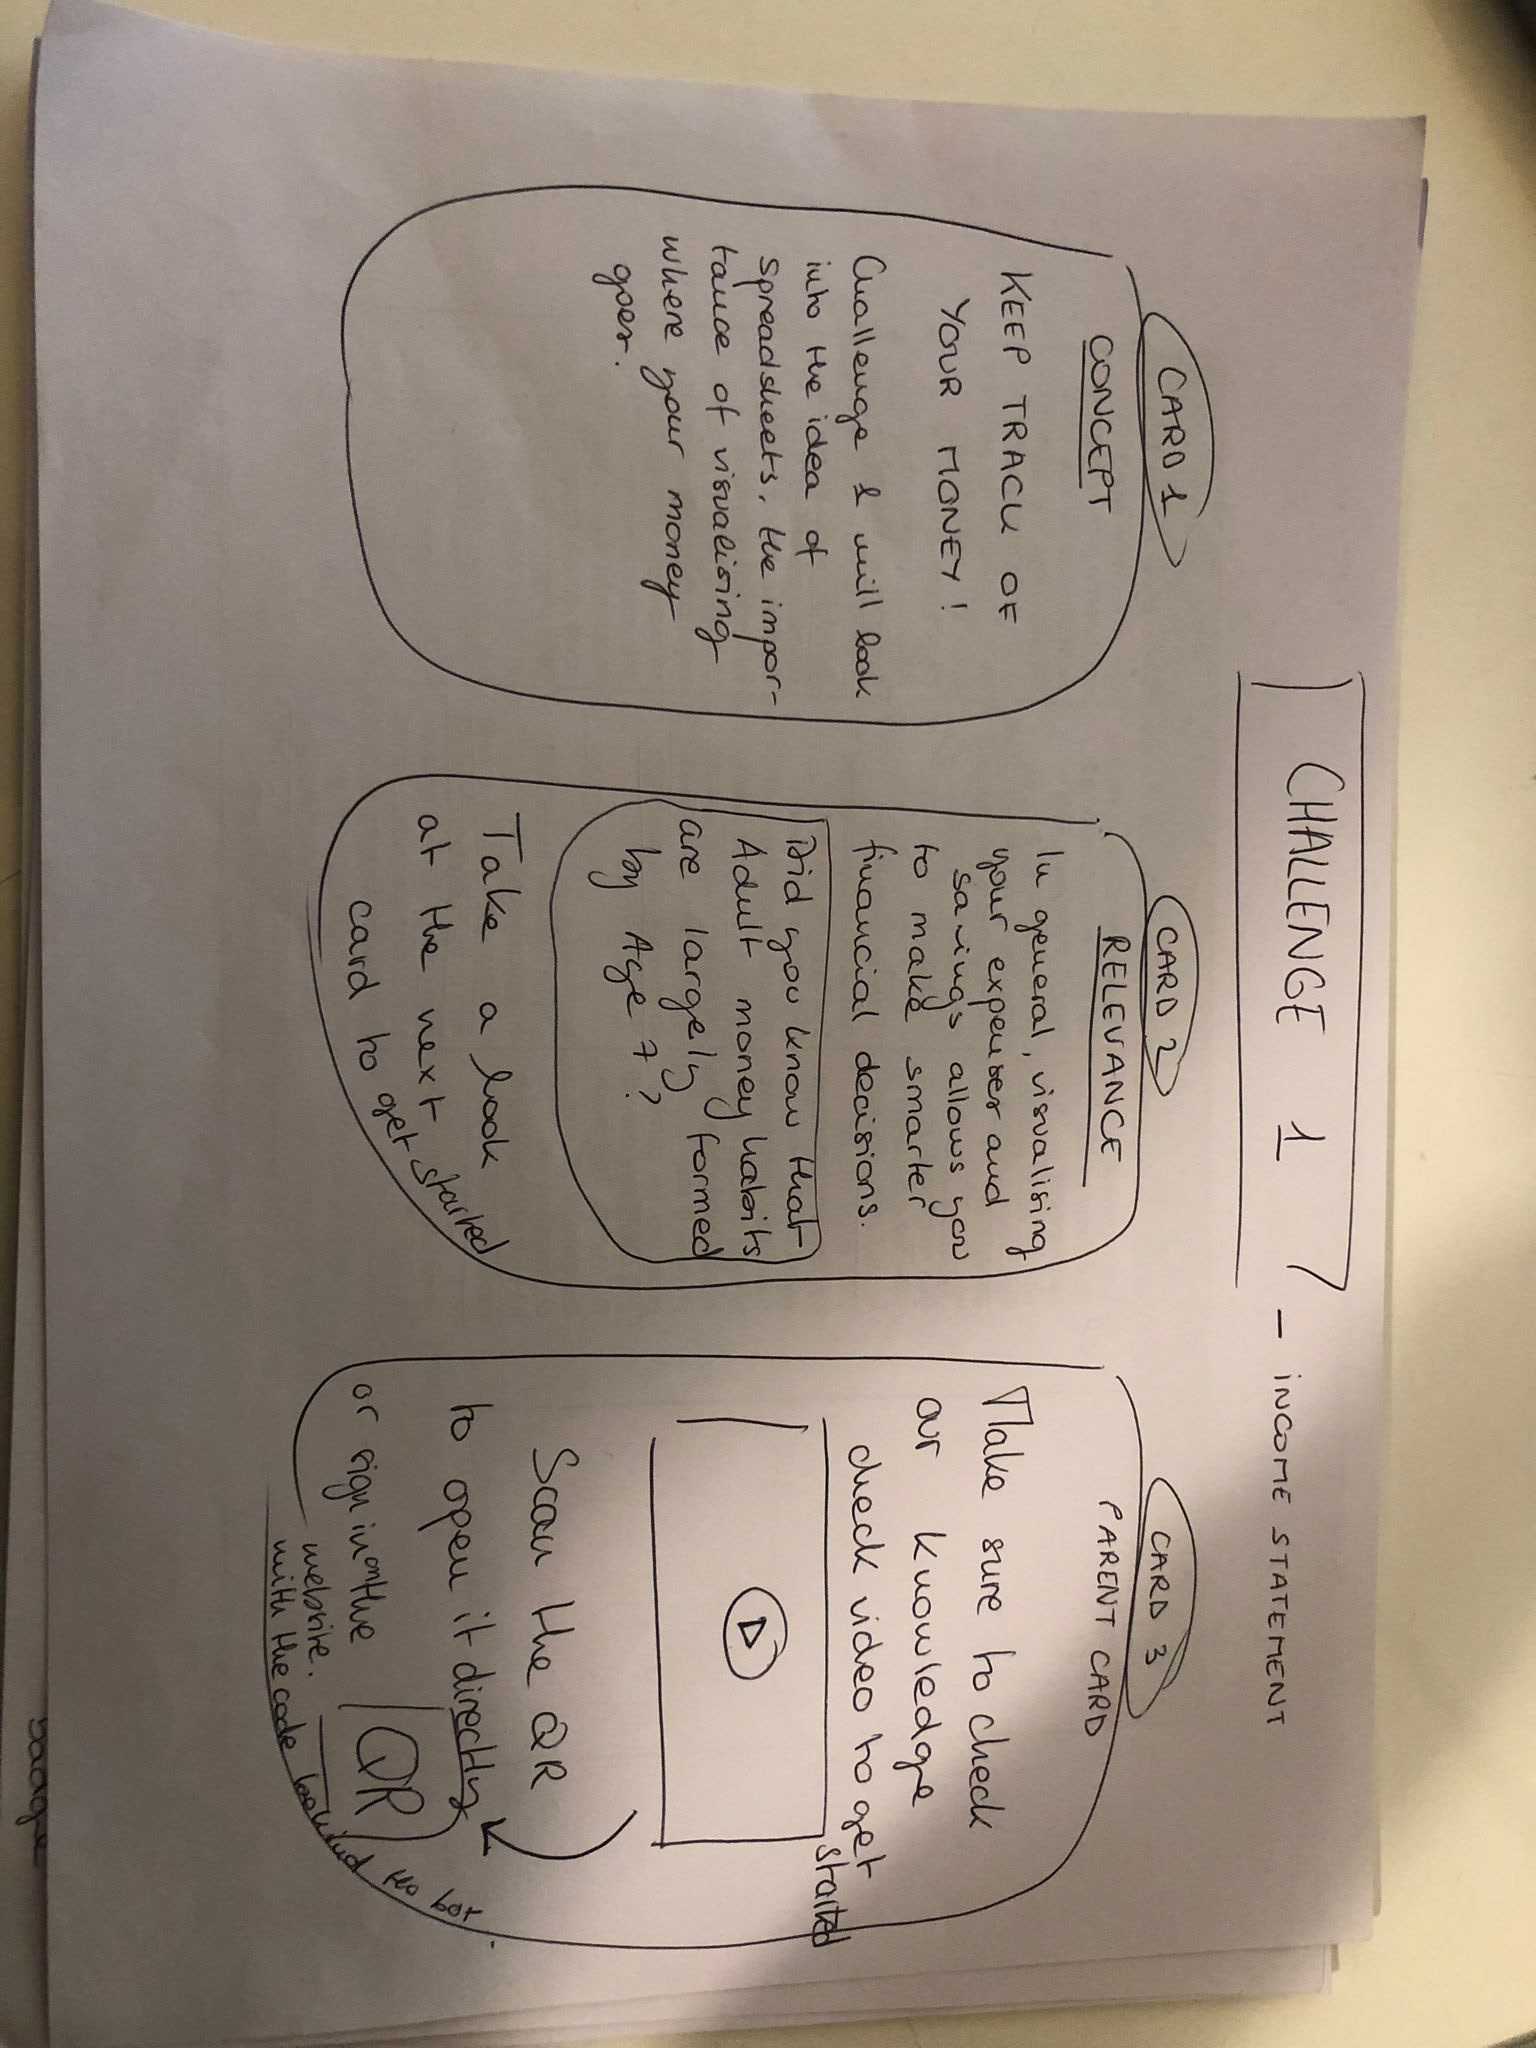 CHALLENGE 1 - INCOME STATEMENT
CARD 1
CONCEPT
KEEP TRACK OF
YOUR MONEY!
Challenge 1 will look
into the idea of
spreadsheets, the impor-
tance of visualising
where your money
goes.
CARD 2
RELEVANCE
In general, visualising
your expenses and
savings allows you
to make smarter
financial decisions.
Did you know that
Adult money habits
are largely formed
by Age 7?
Take a look
at the next
card to get started
CARD 3
PARENT CARD
Make sure to check
our knowledge
check video to get
started
Scan the QR
to open it directly
or sign in on the
website.
with the code behind the box.
QR
badge